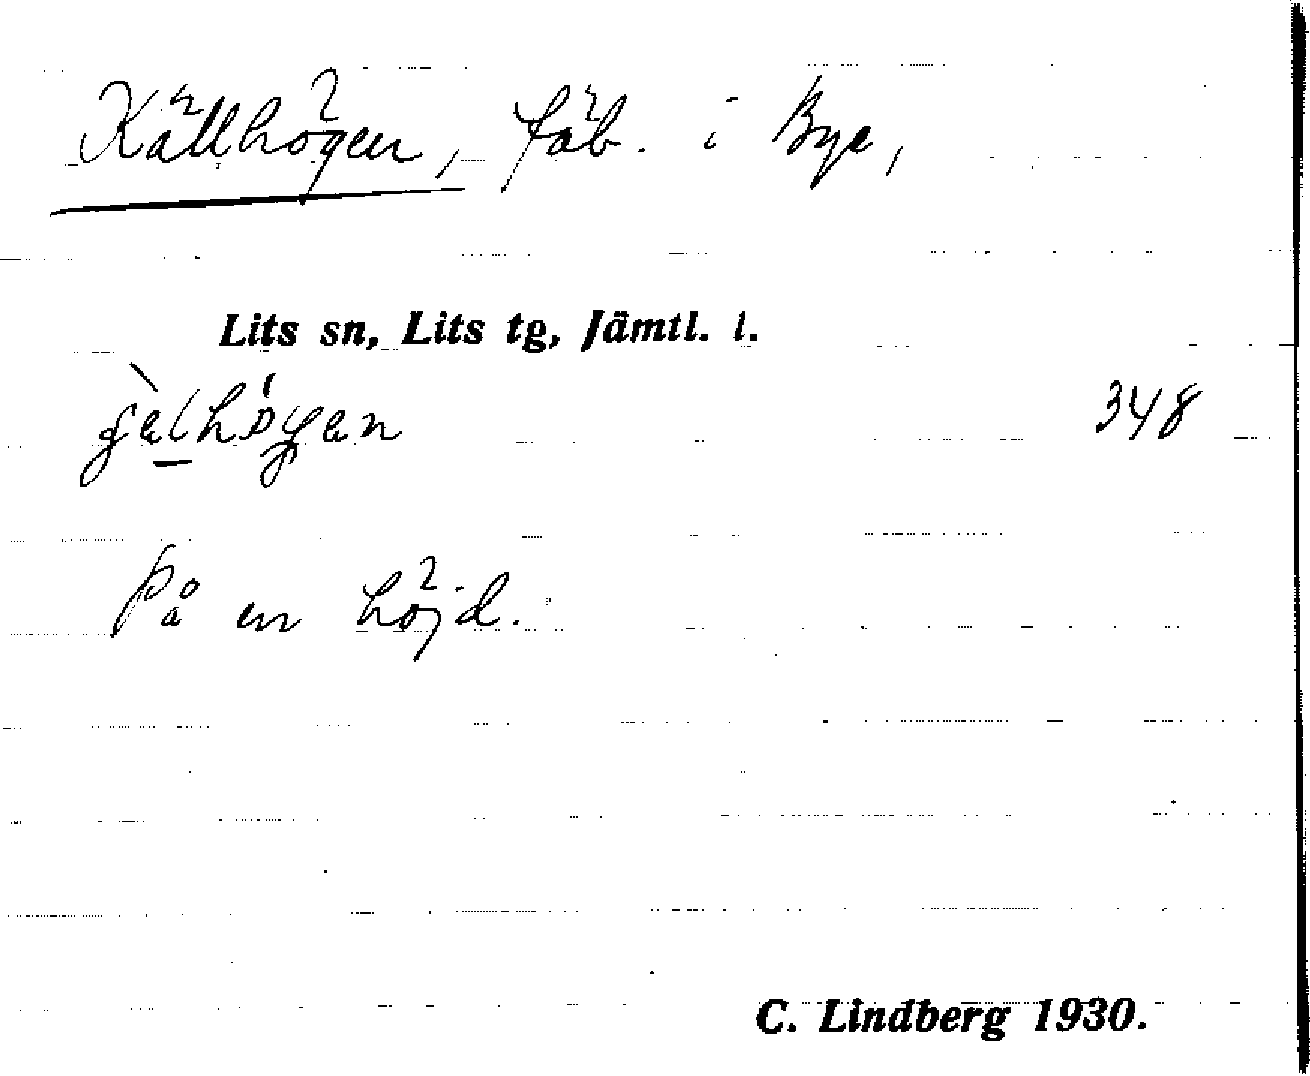 Källhögen, fäb. i Bye,
Lits sn, Lits tg, Jämtl. l.
348
På en höjd.
C. Lindberg 1930.